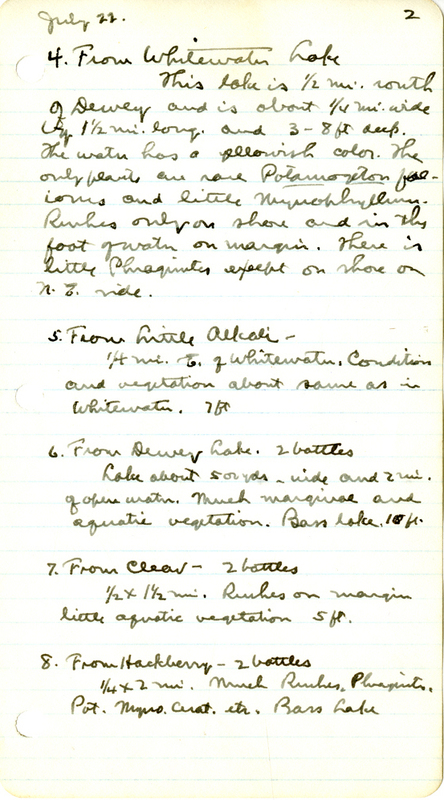 July 22. 2
4. From Whitewater Lake
This lake is 1/2 mi. south
of Dewey and is about 1/4 mi. wide
by 1 1/2 mi. long. and 3-8 ft deep.
The water has a yellowish color. The
only plants are rare Potamogeton
and little Myriophyllum.
Rushes only on shore and in 
foot of water on margin. There is
little Phragmites except on shore on
N. E. side.
5. From Little Alkali -
1/4 mi. E. of Whitewater. Condition
and vegetation about same as in
Whitewater. 7 ft
6. From Dewey Lake. 2 bottles
Lake about 500 yds - wide and 2 mi.
of open water. Much marginal and
aquatic vegetation. Bass lake. 10 ft.
7. From Clear - 2 bottles
1/2 x 1 1/2 mi. Rushes on margin
little aquatic vegetation 5 ft.
8. From Hackberry - 2 bottles
1/4 x 2 mi. Much Rushes, Phragmites.
Pot. Myrio. Cerat. etc. Bass Lake